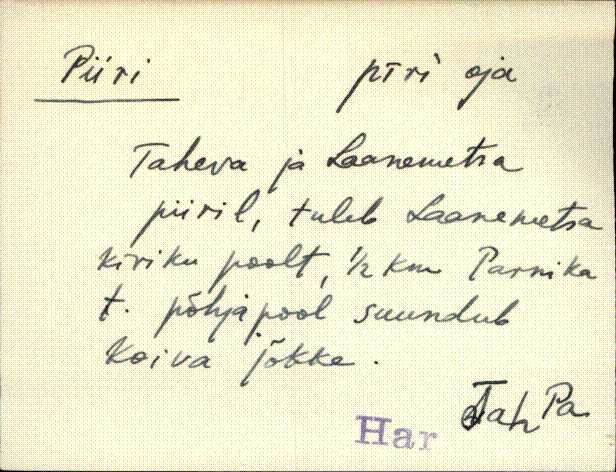 Piiri pīrì oja
Taheva ja Laanemetsa
piiril, tuleb Laanemetsa
kiriku poolt, 1/2 km Parnika
t. põhjapool suundub
Koiva jõkke.
Har Tah Pa